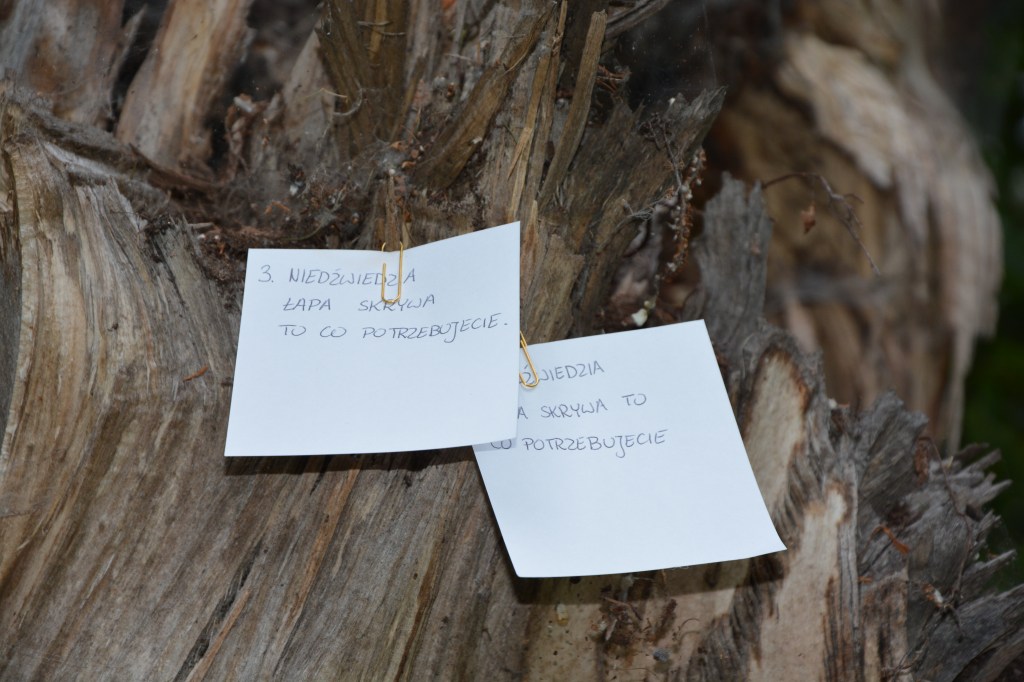 3. NIEDŹWIEDZIA
ŁAPA SKRYWA
TO CO POTRZEBUJECIE.
SKRYWA TO
CO POTRZEBUJECIE